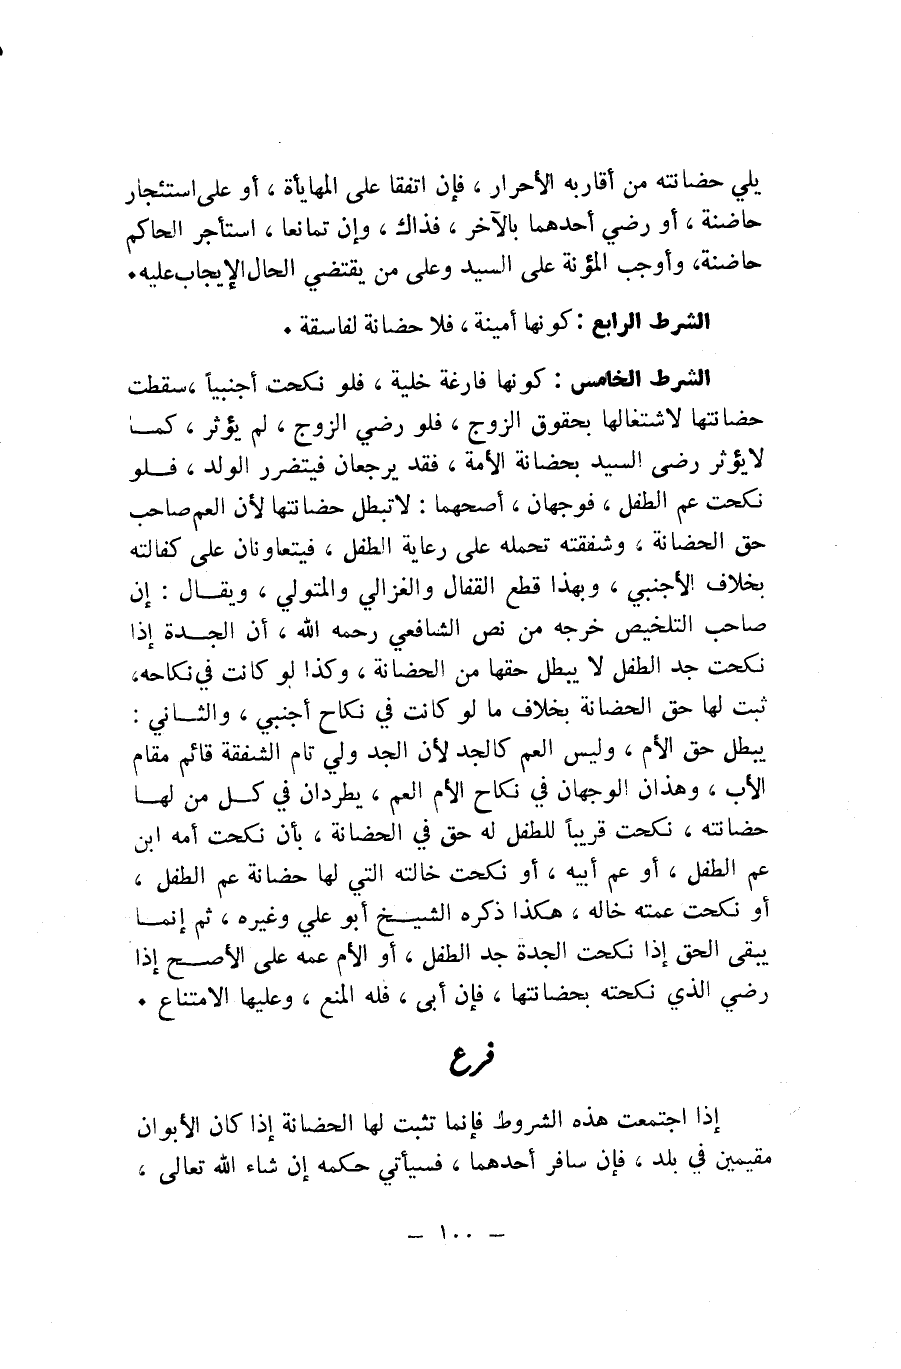 يلي حضانته من أقاربه الأحرار ، فإن اتفقا على المهايأة ، أو على استئجار
حاضنة ، أو رضي أحدهما بالآخر ، فذاك ، وإن تمانعا ، استأجر الحاكم
حاضنة، وأوجب المؤنة على السيد وعلى من يقتضي الحال الإيجاب عليه.
الشرط الرابع : كونها أمينة ، فلا حضانة لفاسقة .
الشرط الخامس : كونها فارغة خلية ، فلو نكحت أجنبياً ، سقطت
حضانتها لاشتغالها بحقوق الزوج ، فلو رضي الزوج ، لم يؤثر ، كمـا
لا يؤثر رضى السيد بحضانة الأمة ، فقد يرجعان فيتضرر الولد ، فـلو
نكحت عم الطفل ، فوجهان ، أصحهما : لا تبطل حضانتها لأن العم صاحب
حق الحضانة ، وشفقته تحمله على رعاية الطفل ، فيتعاونان على كفالته
بخلاف الأجنبي ، وبهذا قطع القفال والغزالي والمتولي ، ويقـال : إن
صاحب التلخيص خرجه من نص الشافعي رحمه الله ، أن الجـدة إذا
نكحت جد الطفل لا يبطل حقها من الحضانة ، وكذا لو كانت في نكاحه،
ثبت لها حق الحضانة بخلاف ما لو كانت في نكاح أجنبي ، والثـاني :
يبطل حق الأم ، وليس العم كالجد لأن الجد ولي تام الشفقة قائم مقام
الأب ، وهذان الوجهان في نكاح الأم العم ، يطردان في كـل من لهـا
حضانته ، نكحت قريباً للطفل له حق في الحضانة ، بأن نكحت أمه ابن
عم الطفل ، أو عم أبيه ، أو نكحت خالته التي لها حضانة عم الطفل ،
أو نكحت عمته خاله ، هكذا ذكره الشيـخ أبو علي وغيره ، ثم إنمـا
يبقى الحق إذا نكحت الجدة جد الطفل ، أو الأم عمه على الأصـح إذا
رضي الذي نكحته بحضانتها ، فإن أبى ، فله المنع ، وعليها الامتناع .
فرع
إذا اجتمعت هذه الشروط فإنما تثبت لها الحضانة إذا كان الأبوان
مقيمين في بلد ، فإن سافر أحدهما ، فسيأتي حكمه إن شاء الله تعالى ،
– ١٠٠ –